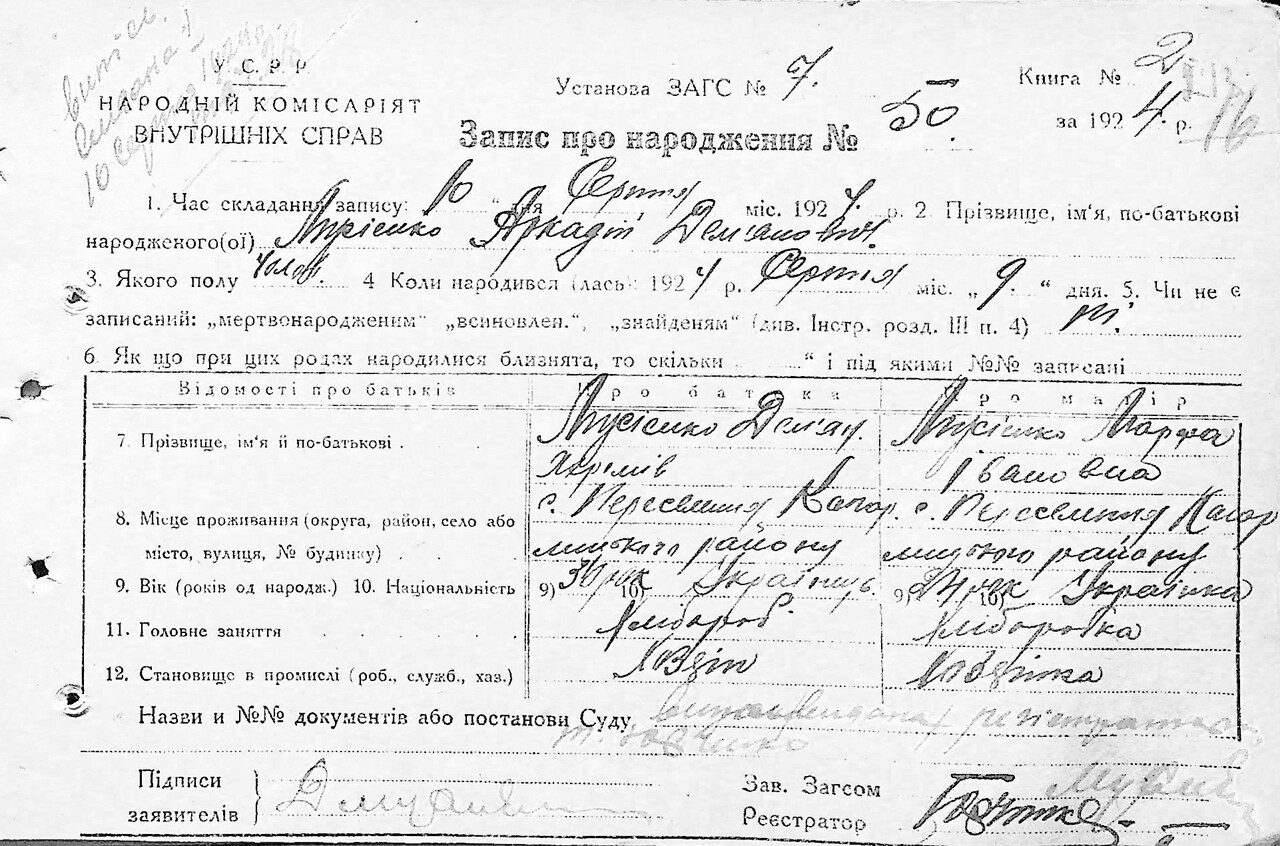 Випись
видана
10 серпня 1924 р.
У.С.Р.Р.
НАРОДНІЙ КОМІСАРІЯТ
ВНУТРІШНІХ СПРАВ
Установа ЗАГС № 7.
Книга № 2
за 1924 р.
Запис про народження № 50.
1. Час складання запису: 10 " дня Серпня міс. 1924 р. 2 Прізвище, ім'я, по-батькові
народженого(ої) Мусієнко Аркадій Дем'янович.
3. Якого полу чолов. 4 Коли народився (лась) 1924 р. Серпня міс. „ 9. " дня. 5. Чи не є
записаний: „мертвонародженим" „всиновлен.", „знайденям" (див. Інстр. розд. III п. 4) Ні.
6. Як що при цих родах народилися близнята, то скільки " і під якими №№ записані
Відомості про батьків Про батька Про матір
7. Прізвище, ім'я й по-батькові . Мусієнко Дем'ян. Мусієнко Марфа
Яремів Івановна
8. Місце проживання (округа, район, село або с. Переселення Кагар. с. Переселення Кагар
місто, вулиця, № будинку) . . лицького району лицького району
9. Вік (років од народж.) 10. Національність 9) 30 рок 10) Українец. 9) рок 10) Українка
11. Головне заняття Хлібороб. Хліборобка
12. Становище в промислі (роб., служб., хаз.) Хазяїн Хазяїнка
Назви и №№ документів або постанови Суду,
Підписи
заявителів
Зав. Загсом
Реєстратор